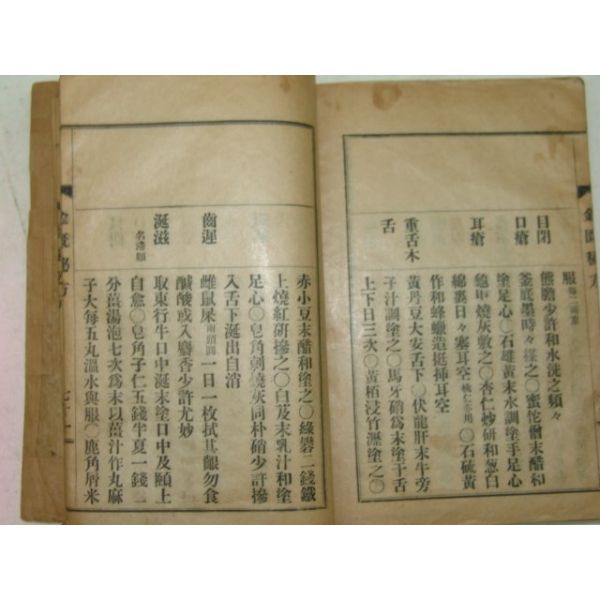 金匱秘方
服每二兩重
目閉 熊膽少許和水洗之頻々
口瘡 釜底墨時々搽之〇蜜佗僧末醋和
塗足心〇石雄黃末水調塗手足心
耳瘡 龜甲燒灰敷之〇杏仁炒研和葱白
綿裹日々塞耳空桃仁亦用〇石硫黃
作和蜂蠟造挺挿耳空
重舌木 黃丹豆大安舌下〇伏龍肝末牛旁
舌 子汁調塗之〇馬牙硝為末塗于舌
上下日三次〇黃栢浸竹瀝塗之〇
赤小豆末醋和塗之〇綠礬二錢鐵
上燒紅研摻之〇白芨末乳汁和塗
足心〇皂角刺燒灰同朴硝少許摻
入舌下涎出自消
齒遲 雌鼠屎兩頭圓一日一枚拭其齦勿食
鹹酸或入麝香少許尤妙
涎滋 取東行牛口中涎末塗口中及頤上
名滯頤 自愈〇皂角子仁五錢半夏一錢二
分薑湯泡七次為末以薑汁作丸麻
子大每五丸溫水與服〇鹿角屑米
金匱秘方